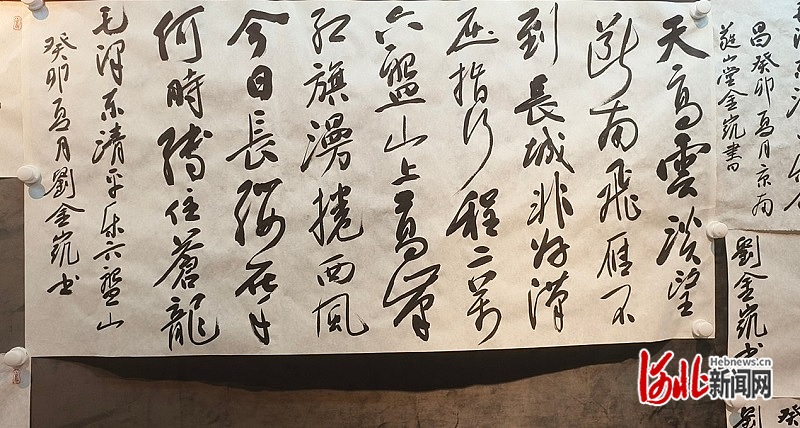 昌癸卯夏月京南
山堂金凱書
劉金凱书
天高雲淡望
斷南飛雁不
到長城非好漢
屈指行程二萬
六盤山上高峰
红旗漫捲西風
今日長纓在手
何時縛住蒼龍
毛泽东清平乐六盤山
癸卯夏月劉金凱书
河北新闻网
Hebnews.cn